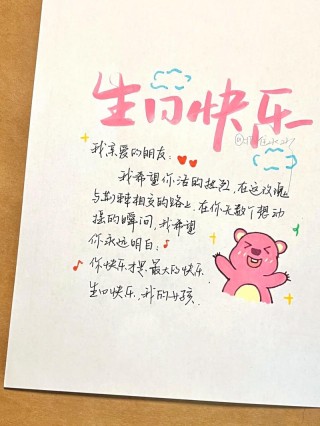 生日快乐
我亲爱的朋友：
我希望你活的热烈，在这玫瑰
与荆棘相交的路上，在你无数个想动
摇的瞬间，我希望
你永远明白：
你快乐才是最大的快乐
生日快乐，我的女孩